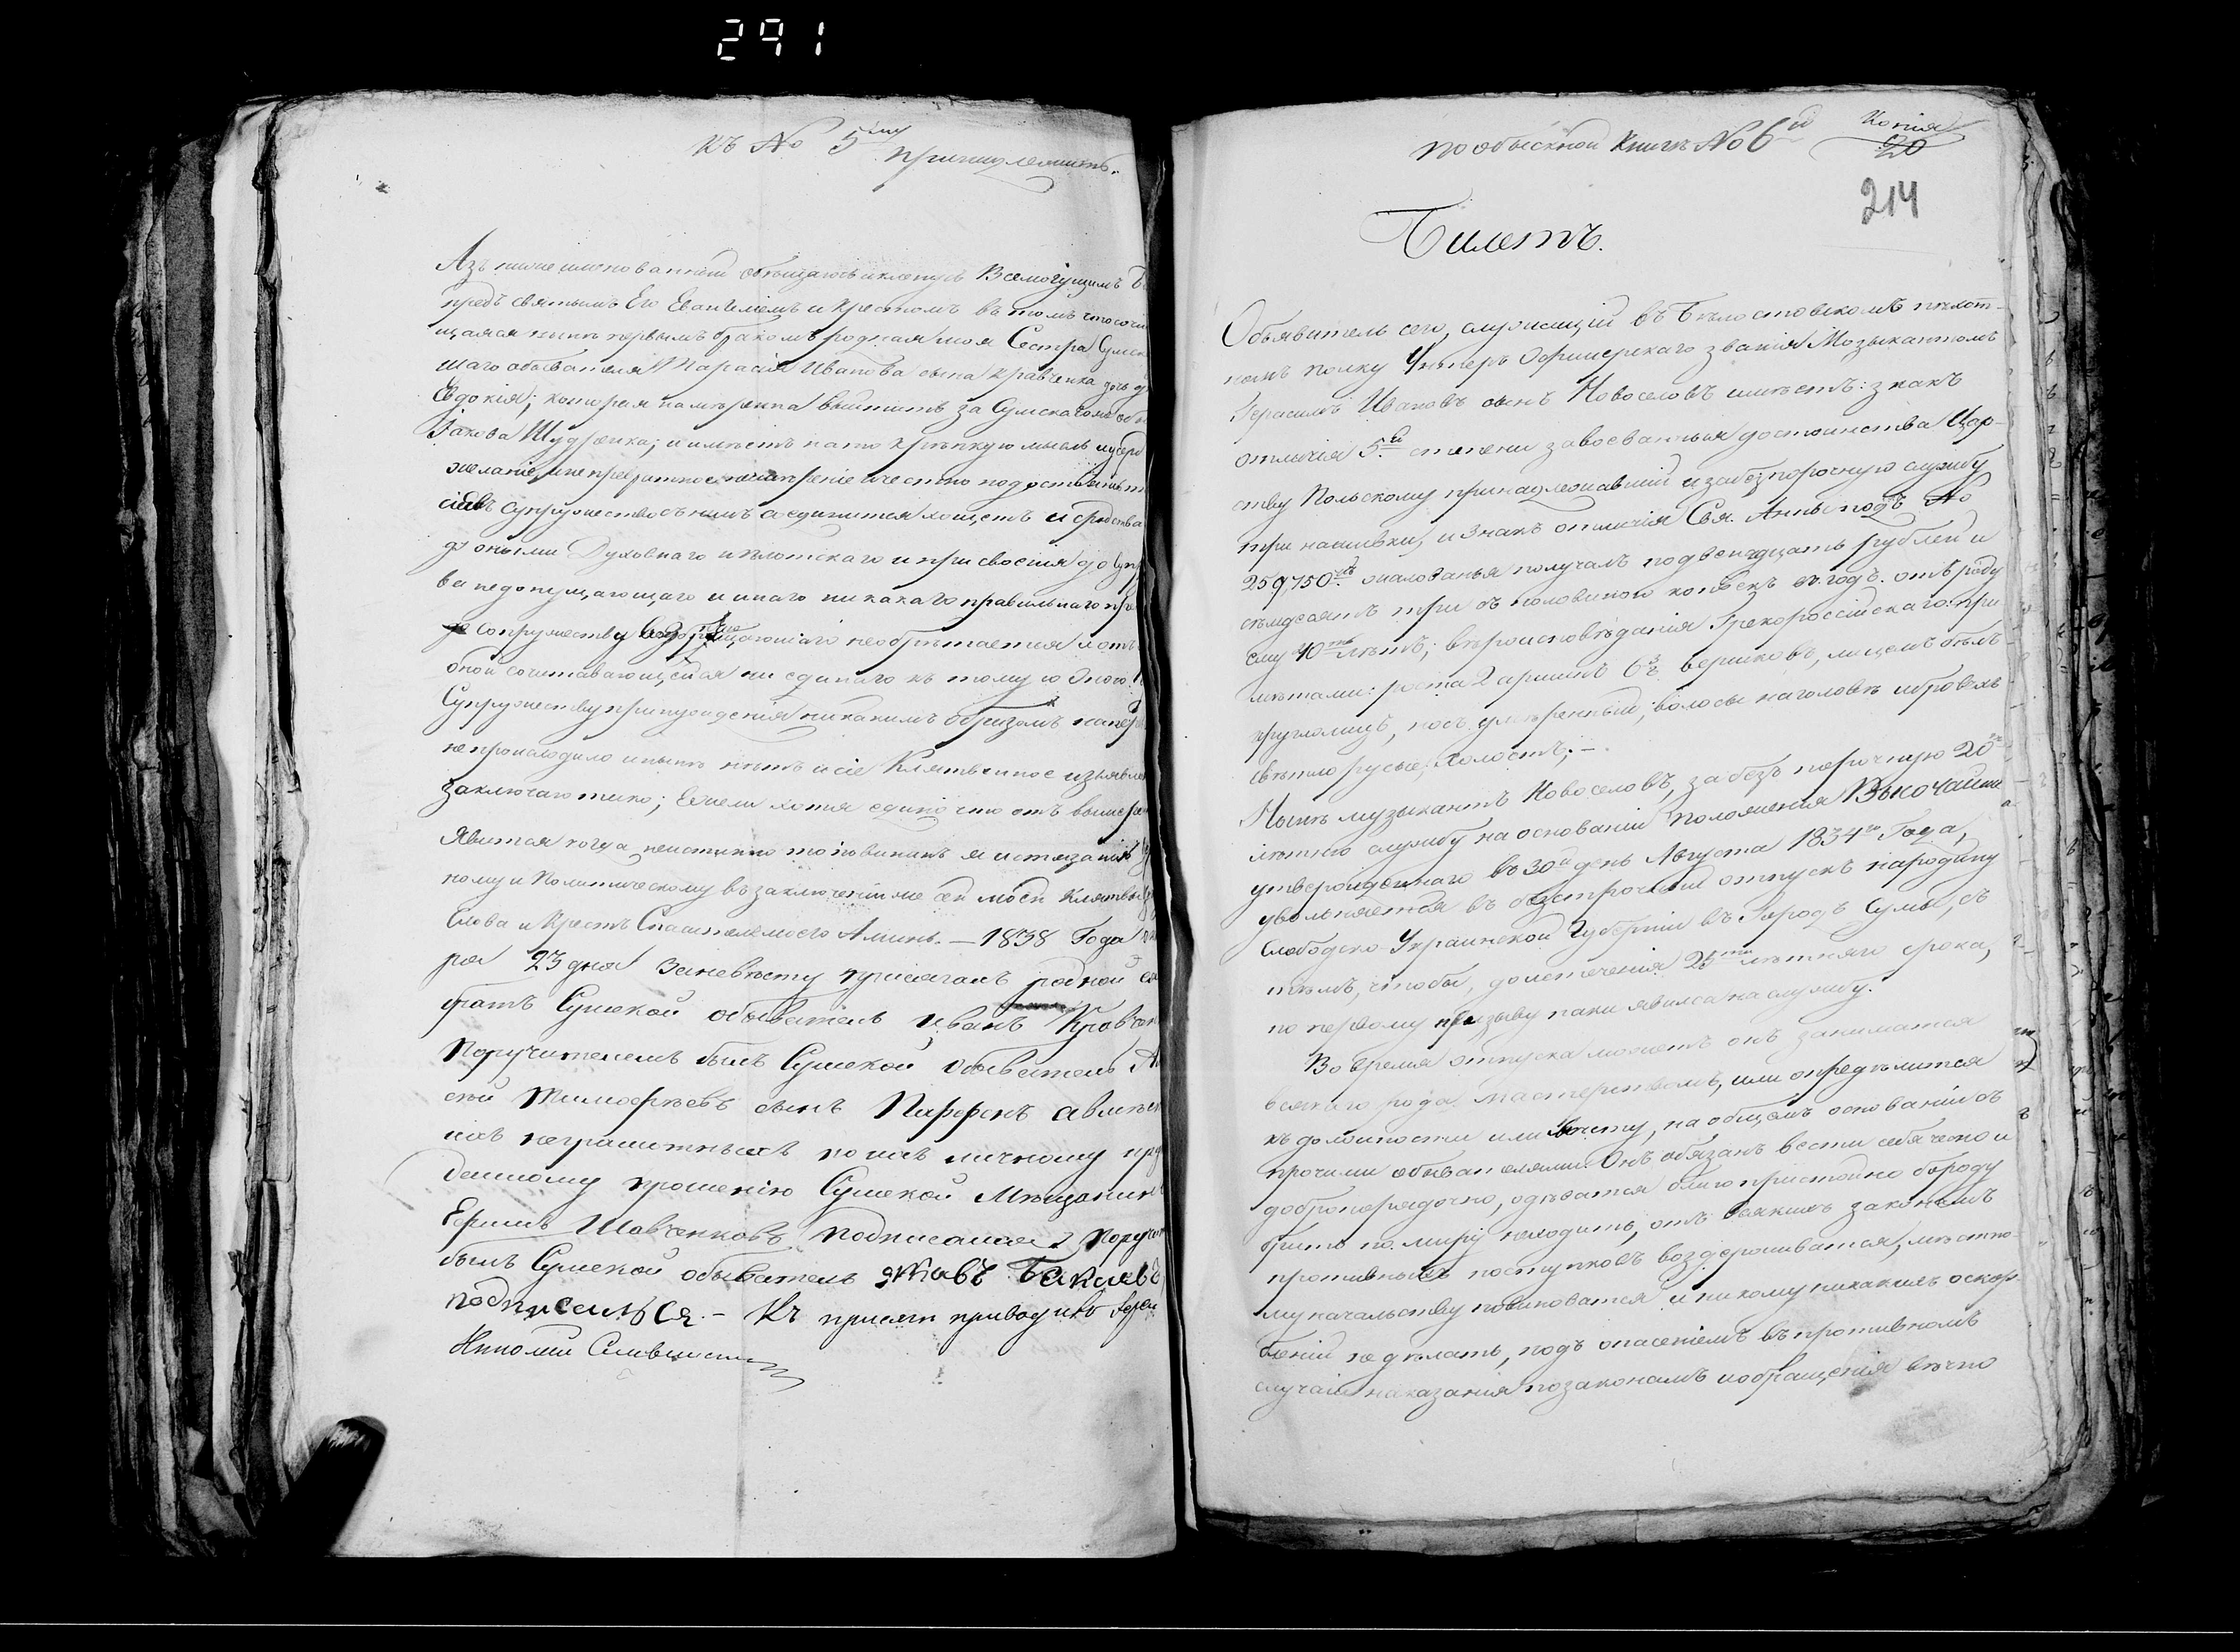 291
къ No 5му принадлежитъ.
Азъ ниже имянованный обѣщаюсь и кленусь Всемогущимъ Б
предъ святымъ Его Евангелiемъ и Крестомъ въ томъ что сочи
щаяся нынѣ первымъ бракомъ родная моя Сестра Сумск
шаго обывателя Ивана сына Кравченка дочь д
Евдокiя; которая намѣренна выйтить за Сумскагожъ об
Iакова Шудренка; и имѣетъ на то крѣпкую мысль и усерд
желанiе, и непревратное намѣренiе и честно по достоинст
въ супружество съ нимъ соединится хощетъ и сродства
Духовнаго и плотскаго и присвоенiя до Супр
ва недопущающаго и инаго никакаго правильнаго пре
сопружеству необрѣтается
обой сочитавающейся ни единаго къ тому
Супружеству принужденiя никакимъ образомъ
не происходило и нынѣ нѣтъ и сiе Клятвенное изъявле
заключаю тако; Ежели хотя едино что отъ вышере
явится когда неистинно то повиненъ я истязанiю
ному и Политическому въ заключенiи же сей моей клятвы
Слова и Крестъ Спасителя моего Аминь. — 1838 Года
ря 23 дня За невѣсту присягалъ родной ея
братъ Сумской обыватель Иванъ Кравчен
Поручителемъ былъ Сумской Обыватель А
сѣй Тимофѣевъ сынъ
неграмотныхъ по ихъ личному
прошенiю Сумской Мѣщанинъ
Ефимъ Шавченковъ подписался, поручи
былъ Сумской обыватель
подписался. — Къ присягѣ приводилъ Iерей
по обыскной Книгѣ No 6й
Копiя
20
214
Билетъ.
Объявитель сего, служащiй въ Бѣлостокскомъ пѣхот-
номъ полку Унтеръ Офицерскаго званiя Музыкантомъ
Герасимъ Ивановъ сынъ Новоселовъ имѣетъ: знакъ
отличiя 5й степени за военныя достоинства Цар-
ству Польскому принадлежавшiй и за безпорочную службу
три нашивки, и знакъ отличiя Свя. Анны подъ No
259,750мъ жалованья получалъ по двенадцать рублей и
семдесятъ три съ половиною копѣекъ въ годъ. отъ роду
ему 40ть лѣтъ; вѣроисповѣданiя Грекороссiйскаго: при
мѣтами: роста 2 аршинъ 6 вершковъ, лицемъ бѣлъ
круглолицъ, носъ умѣренный, волосы на головѣ и бровехъ
свѣтло русые, Холостъ; —
Нынѣ музыкантъ Новоселовъ, за безъ порочную 20ти
лѣтнею службу на основанiи положенiя Высочайше
утвержденнаго въ 30й день Августа 1834го Года,
увольняется въ безсрочный отпускъ на родину
Слободско-Украинской Губернiи въ Городъ Сумы, съ
тѣмъ, чтобы, до истеченiя 25ти лѣтняго срока,
по первому призыву паки явился на службу.
Во время отпуска можетъ онъ заниматся
всякаго рода мастерствомъ, или опредѣлится
къ должности или мѣсту, на общемъ основанiи съ
прочими обывателями. Онъ обязанъ вести себя честно и
добропорядочно, одѣватся благопристойно бороду
брить по мiру неходить, отъ всякихъ законамъ
противныхъ поступковъ воздерживатся, мѣстно-
му начальству повиноватся и никому никакихъ оскор-
бленiй не дѣлать, подъ опасенiемъ въ противномъ
случаѣ наказанiя по законамъ и обращенiя вѣчно